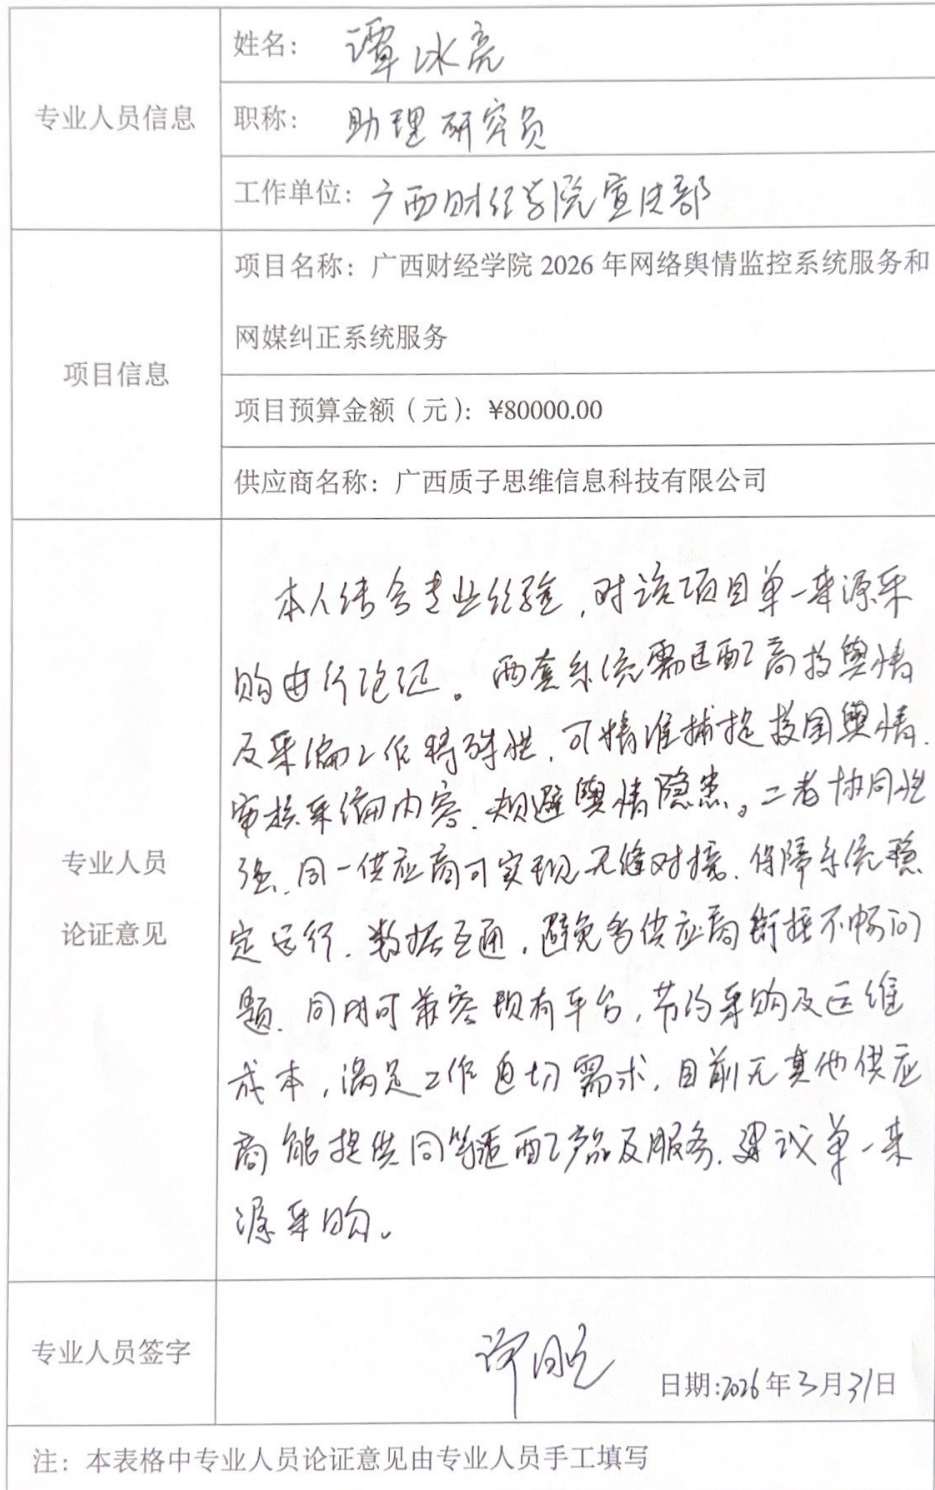 专业人员信息
姓名：谭冰亮
职称：助理研究员
工作单位：广西财经学院宣传部
项目信息
项目名称：广西财经学院 2026 年网络舆情监控系统服务和
网媒纠正系统服务
项目预算金额（元）：¥80000.00
供应商名称：广西质子思维信息科技有限公司
专业人员
论证意见
本人结合专业经验，对该项目单一来源采
购进行论证。两套系统需匹配高校舆情
及采编工作特殊性，可精准捕捉校园舆情、
审核采编内容、规避舆情隐患。二者协同性
强、同一供应商可实现无缝对接、保障系统稳
定运行、数据互通，避免多供应商衔接不畅问
题、同时可兼容现有平台，节约采购及运维
成本，满足工作迫切需求，目前无其他供应
商能提供同等适配产品及服务、建议单一来
源采购。
专业人员签字
日期:2026年3月31日
注：本表格中专业人员论证意见由专业人员手工填写